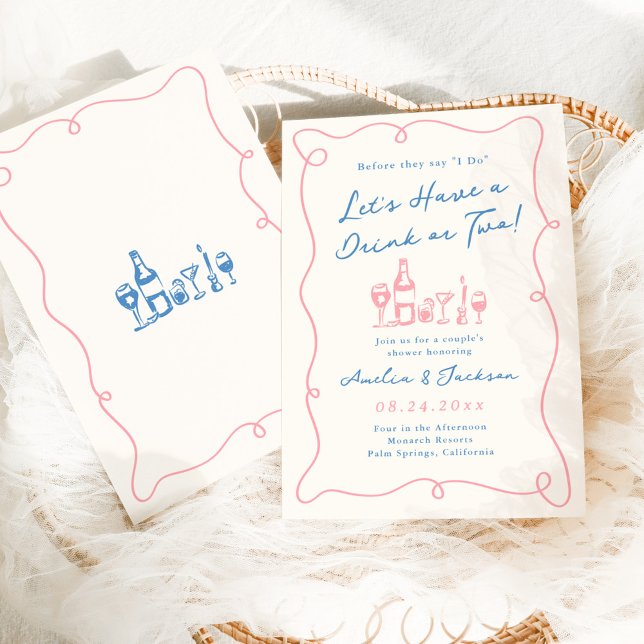 Before they say "I Do"
Let's Have a
Drink or Two!
Join us for a couple's
shower honoring
Amelia & Jackson
08.24.20xx
Four in the Afternoon
Monarch Resorts
Palm Springs, California